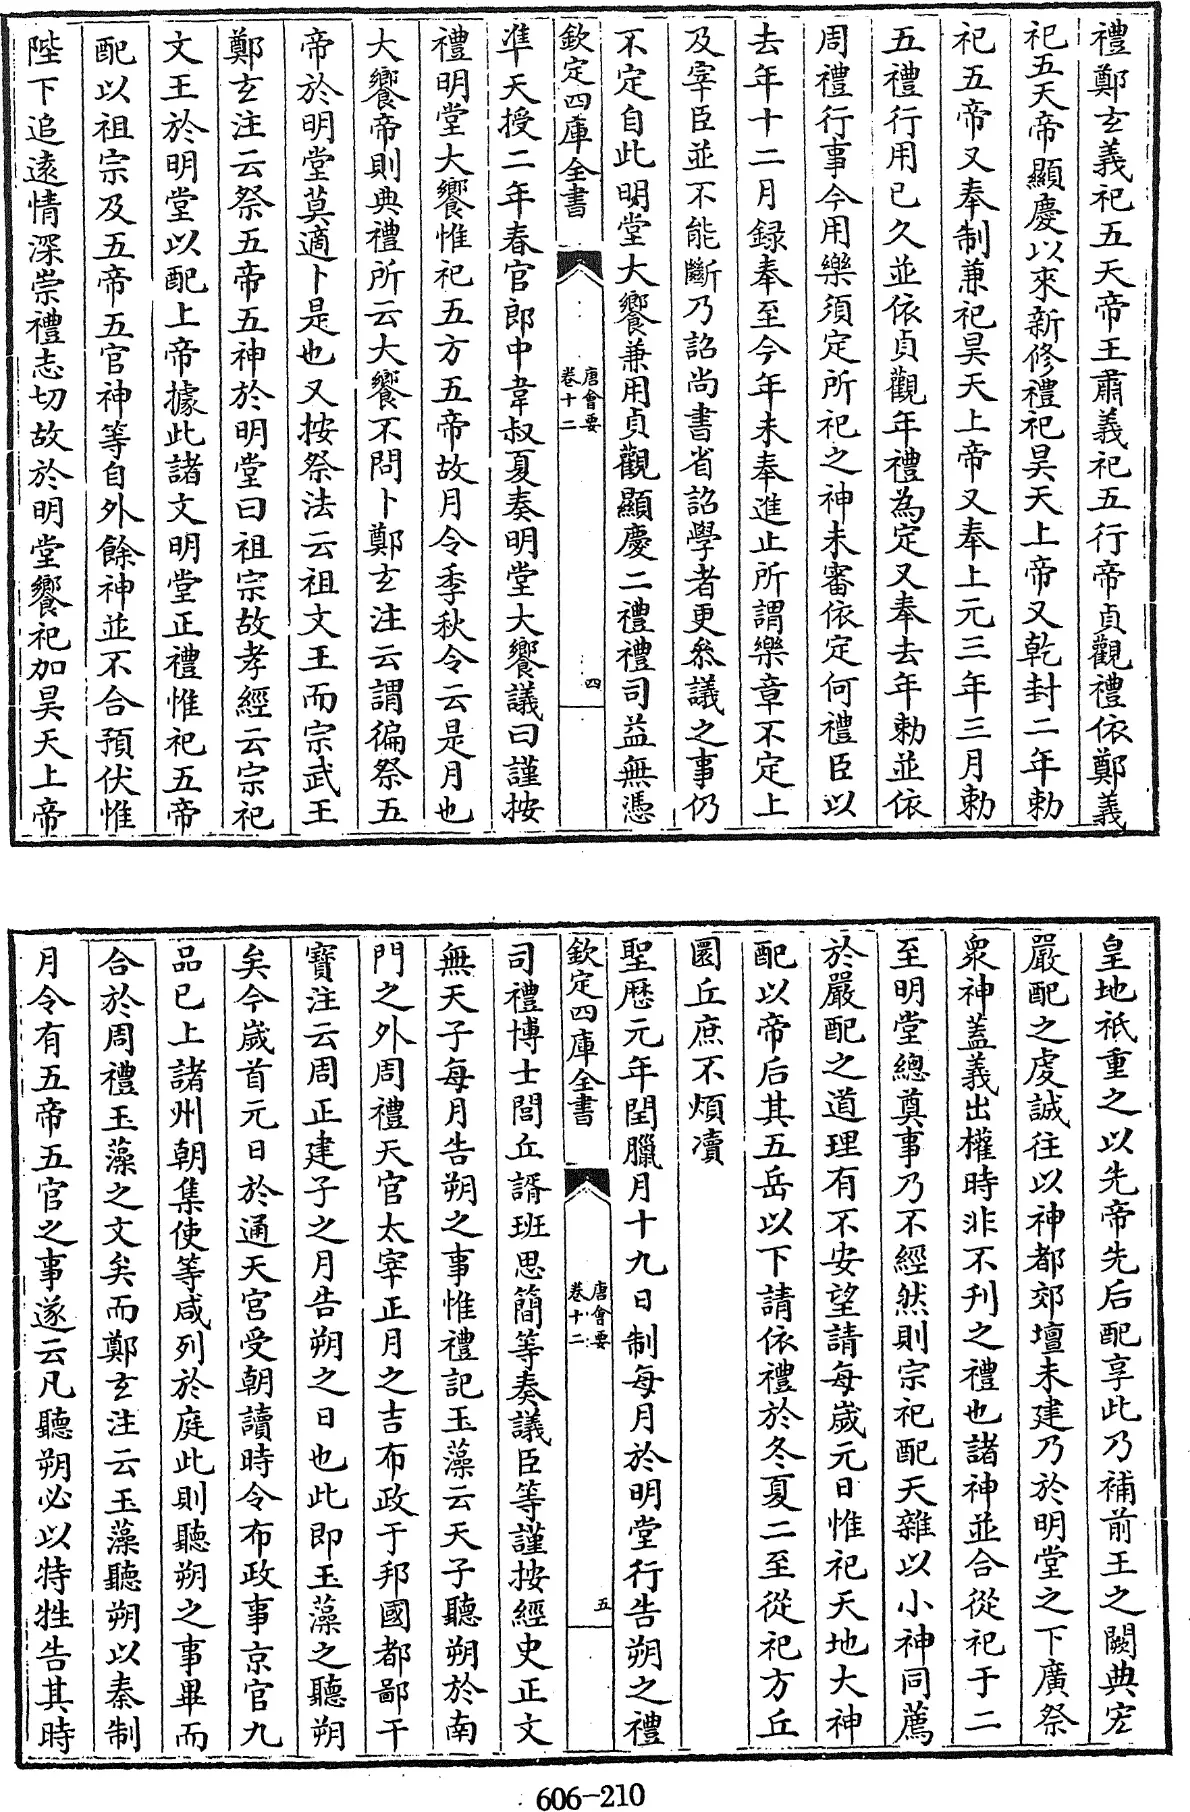 禮鄭玄義祀五天帝王肅義祀五行帝貞觀禮依鄭義
祀五天帝顯慶以來新修禮祀昊天上帝又乾封二年勅
祀五帝又奉制兼祀昊天上帝又奉上元三年三月勅
五禮行用已久並依貞觀年禮為定又奉去年勅並依
周禮行事今用樂須定所祀之神未審依定何禮臣以
去年十二月録奉至今年未奉進止所謂樂章不定上
及宰臣並不能斷乃詔尚書省詔學者更叅議之事仍
不定自此明堂大饗兼用貞觀顯慶二禮禮司益無憑
欽定四庫全書
唐會要
卷十二
四
準天授二年春官郎中韋叔夏奏明堂大饗議曰謹按
禮明堂大饗惟祀五方五帝故月令季秋令云是月也
大饗帝則典禮所云大饗不問卜鄭玄注云謂徧祭五
帝於明堂莫適卜是也又按祭法云祖文王而宗武王
鄭玄注云祭五帝五神於明堂曰祖宗故孝經云宗祀
文王於明堂以配上帝據此諸文明堂正禮惟祀五帝
配以祖宗及五帝五官神等自外餘神並不合預伏惟
陛下追逺情深崇禮志切故於明堂饗祀加昊天上帝
皇地祇重之以先帝先后配享此乃補前王之闕典宏
嚴配之虔誠往以神都郊壇未建乃於明堂之下廣祭
衆神蓋義出權時非不刊之禮也諸神並合從祀于二
至明堂總奠事乃不經然則宗祀配天雜以小神同薦
於嚴配之道理有不安望請每歲元日惟祀天地大神
配以帝后其五岳以下請依禮於冬夏二至從祀方丘
圜丘庶不煩凟
聖厯元年閏臘月十九日制每月於明堂行告朔之禮
欽定四庫全書
唐會要
卷十二
五
司禮博士閭丘諝班思簡等奏議臣等謹按經史正文
無天子每月告朔之事惟禮記玉藻云天子聽朔於南
門之外周禮天官太宰正月之吉布政于邦國都鄙干
寶注云周正建子之月告朔之日也此即玉藻之聽朔
矣今歲首元日於通天宮受朝讀時令布政事京官九
品已上諸州朝集使等咸列於庭此則聽朔之事畢而
合於周禮玉藻之文矣而鄭玄注云玉藻聽朔以秦制
月令有五帝五官之事遂云凡聽朔必以特牲告其時
606-210